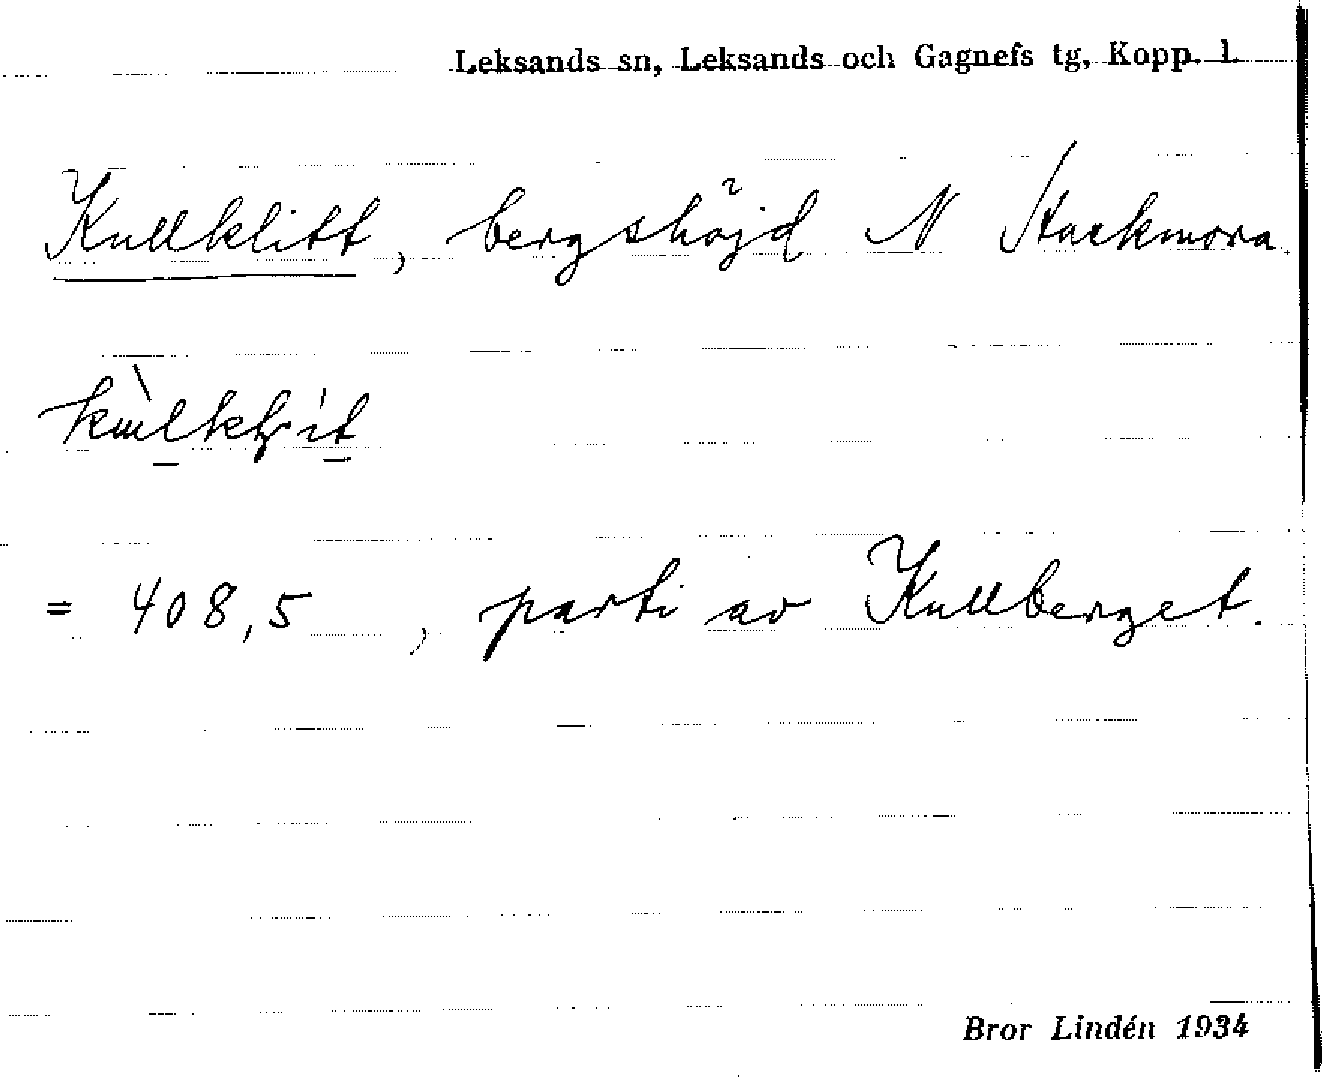 Leksands sn, Leksands och Gagnefs tg, Kopp. l.
Kullklitt, bergshöjd N Stackmora.
= 408,5 , parti av Kullberget.
Bror Lindén 1934